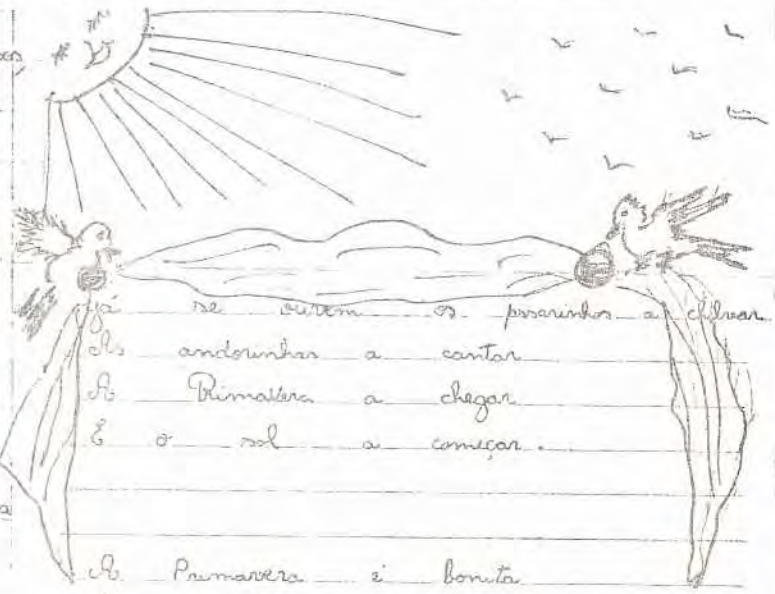 Já se ouvem os pssarinhos a chilrear
As andorinhas a cantar
A Primavera a chegar
E o sol a começar.
A Primavera é bonita